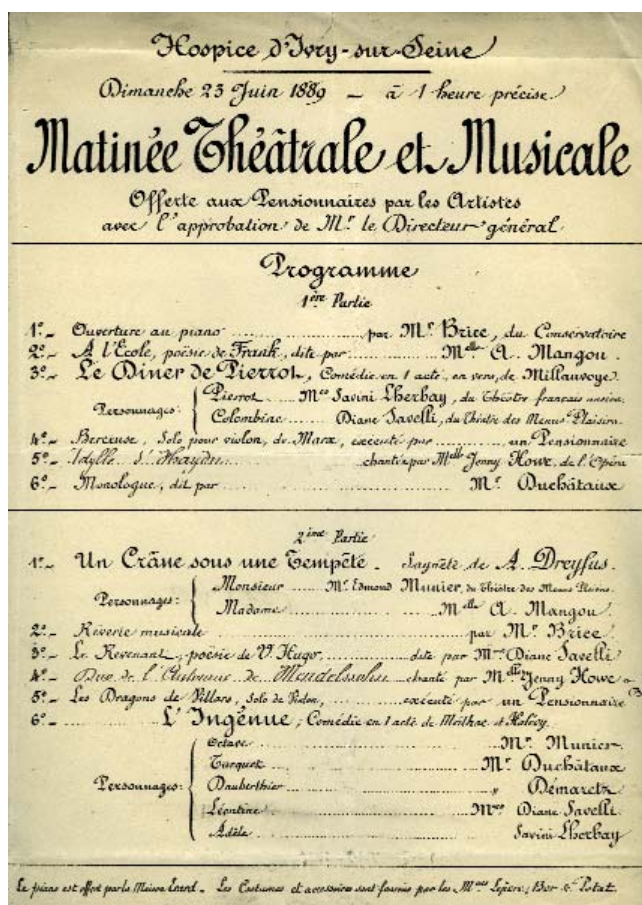 Hospice d'Ivry-sur-Seine
Dimanche 23 Juin 1889 _ à 1 heure précise
Matinée Théâtrale et Musicale
Offerte aux Pensionnaires par les Artistes
avec l'approbation de Mr le Directeur général
Programme
1ère Partie
1º_ Ouverture au piano .......... par Mr Brice, du Conservatoire
2º_ A l'Ecole, poësie de Frank, dite par .......... Melle A. Mangou.
3º_ Le Diner de Pierrot, Comédie en 1 acte, en vers, de Millanvoye.
Personnages: Pierrot .... Mes Savini Lherbay, du Théâtre français
Colombine .... Diane Savelli, du Théâtre des Menus Plaisirs.
4º_ Berceuse, Solo pour violon, de Marx, exécuté par .......... un Pensionnaire
5º_ Idylle d'Haydn .......... chantée par Melle Jenny Howe, de l'Opéra
6º_ Monologue, dit par .......... Mr Duchâtaux
2ème Partie
1º_ Un Crâne sous une Tempête _ Saynète de A. Dreyfus.
Personnages: Monsieur .... Mr Edmond Munier, du Théâtre des Menus Plaisirs.
Madame .......... Melle A. Mangou
2º_ Rêverie musicale .......... par Mr Brice
3º_ Le Revenant, poësie de V. Hugo .......... dite par Mme Diane Savelli
4º_ Duo de l'Automne de Mendelssohn chanté par Melle Jenny Howe
5º_ Les Dragons de Villars, Solo de Violon, .......... exécuté par un Pensionnaire
6º_ .......... L'Ingénue, Comédie en 1 acte de Meilhac et Halévy.
Personnages: Octave .......... Mr Munier
Turquet .......... Mr Duchâtaux
Dauberthier .......... " Démaretz
Léontine .......... Mmes Diane Savelli
Adèle .......... Savini Lherbay
Le piano est offert par la Maison Erard _ Les Costumes et accessoires sont fournis par les Mons